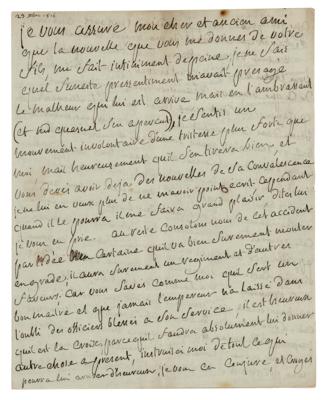 je vous assure mon cher et ancien ami
que la nouvelle que vous me donnes de votre
fils, me fait infiniment de peine, je ne sais
quel funeste pressentiment m'avait presagé
le malheur qui lui est arrivé mais en l'embrassant
(et sed quesnel s'en aperçut), je sentis un
mouvement involontaire d'une tristesse plus forte que
moi mais heureusement qu'il s'en tirera bien, et
vous deves avoir deja des nouvelles de sa convalescence
je ne lui en veux plus de ne m'avoir point ecrit cependant
quand il le pourra il me faira grand plaisir dites lui
je vous en prie. au reste consolons nous de cet accident
par l'idée certaine qu'il va bien surement monter
en grade, il aura surement un regiment et d'autres
faveurs. car vous saves comme moi qu'il sert un
bon maitre et que jamais l'empereur n'a laissé dans
l'oubli des officiers blessés a son service, il est heureux
qu'il est la croix, parce qu'il faudra absolument lui donner
autre chose a present, instruises moi de tout ce qui
pourra lui arriver d'heureux, je vous en conjure, et croyes